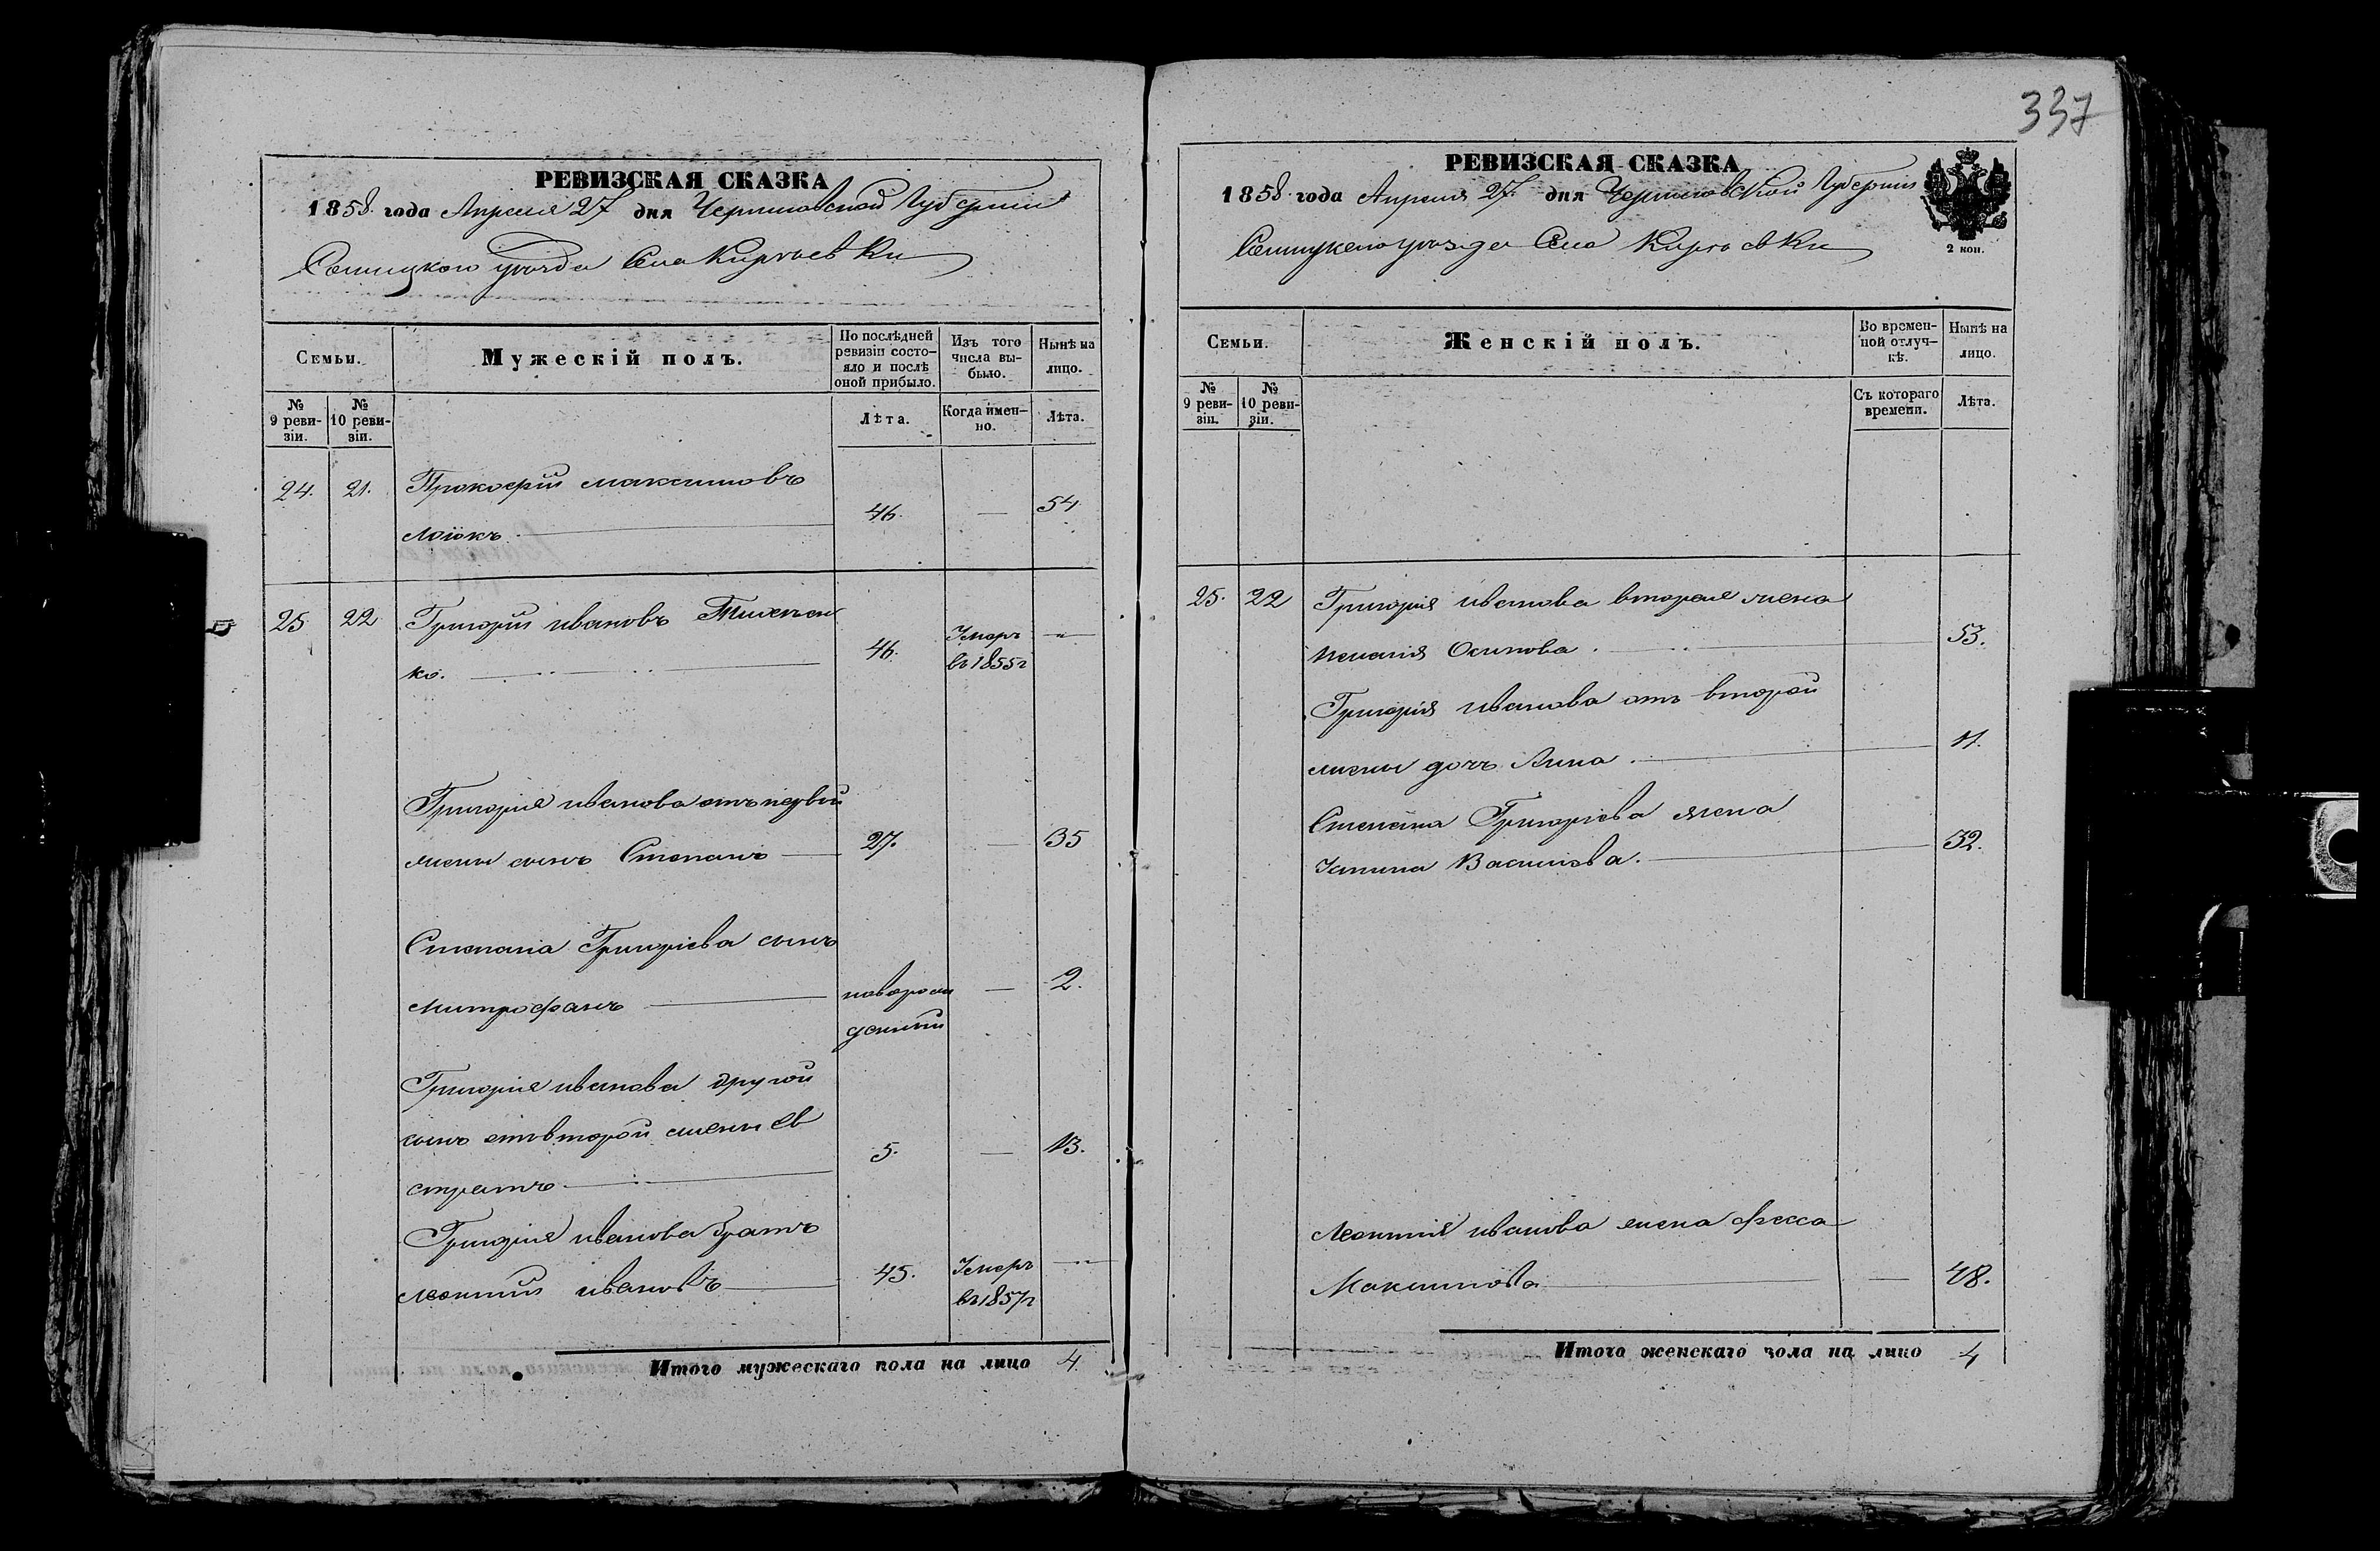 337
РЕВИЗСКАЯ СКАЗКА
1858 года Апреля 27 дня Черниговской Губернии
Сосницкого уезда Села
Семьи.
Мужескій полъ.
По послѣдней ревизіи состояло и послѣ оной прибыло.
Изъ того числа выбыло.
Нынѣ на лицо.
№ 9 ревизіи.
№ 10 ревизіи.
Лѣта.
Когда именно.
Лѣта.
24. 21. Прокофій Максимовъ
46. — 54
25 22 Григорій Ивановъ
ко. 46. Умеръ въ 1855 г
Григорія Иванова отъ первой
жены сынъ Степанъ 27. — 35
Степана Григоріева сынъ
Митрофанъ новорожденный — 2.
Григорія Иванова другой
сынъ отъ второй жены Ев
стратъ 5. — 13.
Григорія Иванова братъ
Леонтий Ивановъ 45. Умеръ въ 1857 г
Итого мужескаго пола на лицо 4.
РЕВИЗСКАЯ СКАЗКА
1858 года Апреля 27 дня Черниговской Губернии
2 коп.
Сосницкого уезда Села
Семьи.
Женскій полъ.
Во временной отлучкѣ.
Нынѣ на лицо.
№ 9 ревизіи.
№ 10 ревизіи.
Съ котораго времени.
Лѣта.
25. 22 Григорія Иванова вторая жена
Осипова 53.
Григорія Иванова отъ второй
жены дочь Анна 11.
Степана Григоріева жена
Устина Василіева 32.
Леонтия Иванова жена Фекла
Максимова — 48.
Итого женскаго пола на лицо 4